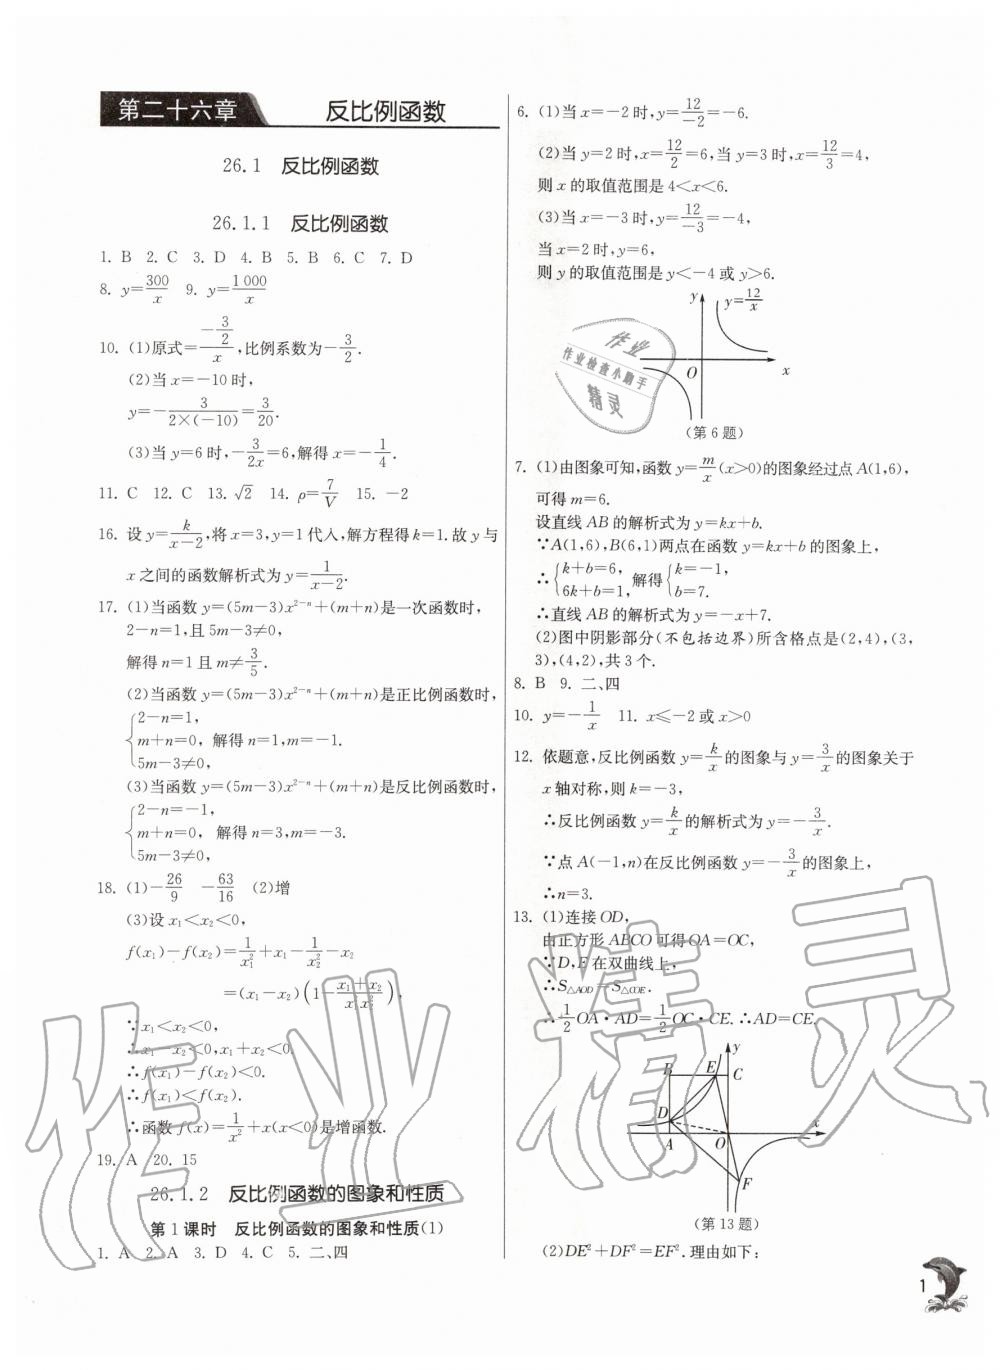 第二十六章 反比例函数
26.1 反比例函数
26.1.1 反比例函数
1. B 2. C 3. D 4. B 5. B 6. C 7. D
8. y=300/x 9. y=1 000/x
10. (1)原式=(-3/2)/x,比例系数为-3/2.
(2)当x=-10时,
y=-3/(2×(-10))=3/20.
(3)当y=6时,-3/(2x)=6,解得x=-1/4.
11. C 12. C 13. √2 14. ρ=7/V 15. -2
16. 设y=k/(x-2),将x=3,y=1代入,解方程得k=1.故y与
x之间的函数解析式为y=1/(x-2).
17. (1)当函数y=(5m-3)x²⁻ⁿ+(m+n)是一次函数时,
2-n=1,且5m-3≠0,
解得n=1且m≠3/5.
(2)当函数y=(5m-3)x²⁻ⁿ+(m+n)是正比例函数时,
{2-n=1,
m+n=0, 解得n=1,m=-1.
5m-3≠0,
(3)当函数y=(5m-3)x²⁻ⁿ+(m+n)是反比例函数时,
{2-n=-1,
m+n=0, 解得n=3,m=-3.
5m-3≠0,
18. (1)-26/9 -63/16 (2)增
(3)设x₁<x₂<0,
f(x₁)-f(x₂)=1/x₁²+x₁-1/x₂²-x₂
=(x₁-x₂)(1-(x₁+x₂)/(x₁²x₂²)),
∵x₁<x₂<0,
∴x₁-x₂<0,x₁+x₂<0.
∴f(x₁)-f(x₂)<0.
∴f(x₁)<f(x₂).
∴函数f(x)=1/x²+x(x<0)是增函数.
19. A 20. 15
26.1.2 反比例函数的图象和性质
第1课时 反比例函数的图象和性质(1)
1. A 2. A 3. D 4. C 5. 二、四
6. (1)当x=-2时,y=12/-2=-6.
(2)当y=2时,x=12/2=6,当y=3时,x=12/3=4,
则x的取值范围是4<x<6.
(3)当x=-3时,y=12/-3=-4,
当x=2时,y=6,
则y的取值范围是y<-4或y>6.
y y=12/x
O x
(第6题)
作业
作业检查小助手
精灵
7. (1)由图象可知,函数y=m/x(x>0)的图象经过点A(1,6),
可得m=6.
设直线AB的解析式为y=kx+b.
∵A(1,6),B(6,1)两点在函数y=kx+b的图象上,
∴{k+b=6, 6k+b=1, 解得{k=-1, b=7.
∴直线AB的解析式为y=-x+7.
(2)图中阴影部分(不包括边界)所含格点是(2,4),(3,
3),(4,2),共3个.
8. B 9. 二、四
10. y=-1/x 11. x≤-2或x>0
12. 依题意,反比例函数y=k/x的图象与y=3/x的图象关于
x轴对称,则k=-3,
∴反比例函数y=k/x的解析式为y=-3/x.
∵点A(-1,n)在反比例函数y=-3/x的图象上,
∴n=3.
13. (1)连接OD,
由正方形ABCO可得OA=OC,
∵D,E在双曲线上,
∴S△AOD=S△COE.
∴1/2OA·AD=1/2OC·CE.∴AD=CE.
y
B E C
D x
A O
F
(第13题)
(2)DE²+DF²=EF².理由如下:
1
作业精灵